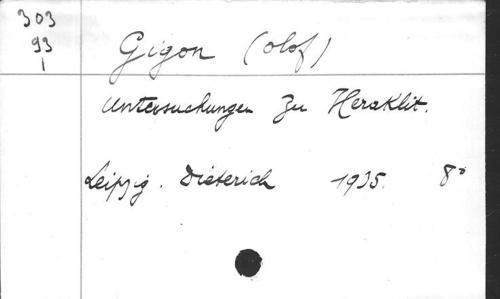 303
93
1
Gigon (Olof)
Untersuchungen zu Heraklit.
Leipzig. Dieterich 1935. 8°